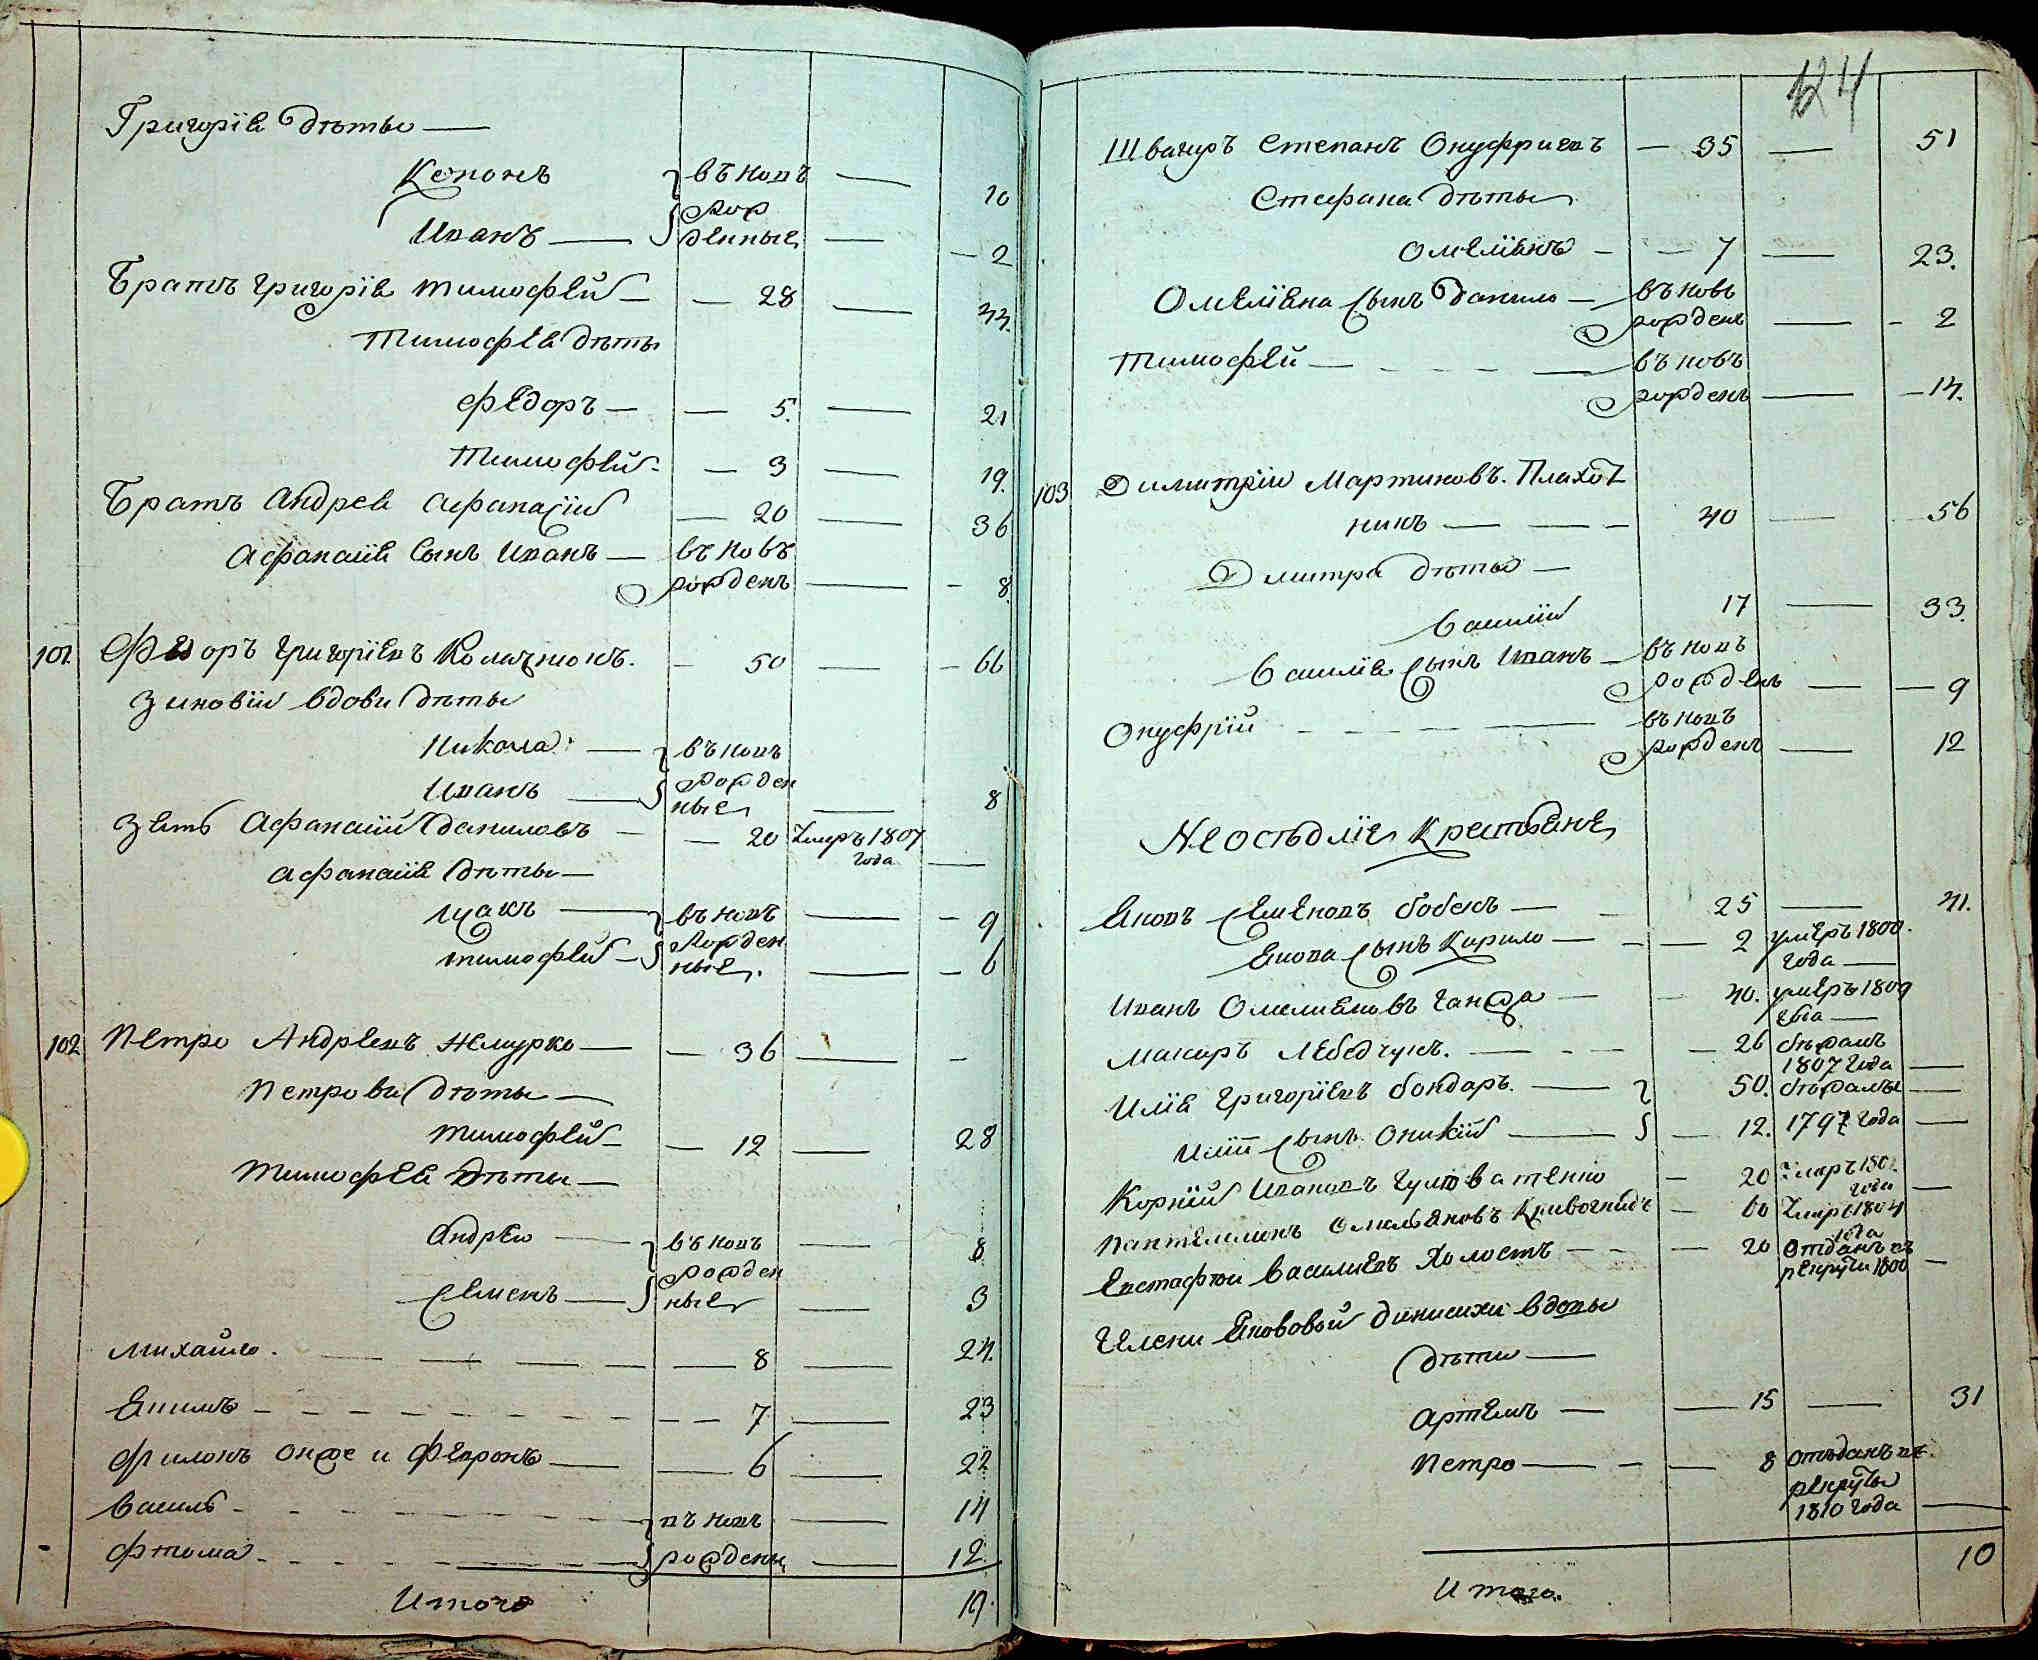 Григорія дѣты —
Кононъ въ новъ — 10
рож
Иванъ — денные — 2
Братъ Григорія Тимофей — 28 — 44.
Тимофея дѣты
Федоръ — 5. — 21
Тимофей — 3 — 19.
Братъ Андрея Афанасій — 20 — 36
Афанасія сынъ Иванъ — въ новъ
рожденъ — 8.
101. Федоръ Григоріевъ — 50 — 66
Зиновіи вдови дѣты
Никола — въ новъ
рожден
Иванъ — ные — 8
Зять Афанасій Даниловъ — 20 умръ 1807
года —
Афанасія дѣты —
Исакъ — въ новъ — 9
рожден
Тимофей — ные. — 6
102 Петро Андреевъ Жмурко — 36 —
Петрова дѣты —
Тимофей — 12 — 28
Тимофея дѣты —
Андрей — въ новъ — 8
рожден
Семенъ — ные — 3
Михайло. — 8 — 24.
Екимъ — 7 — 23
Филонъ онже и Феронъ — 6 — 22
Василь — въ новъ — 14
Фтома — рождени — 12.
Итого 19.
124
Швагръ Степанъ Онуфриевъ — 35 — 51
Стефана дѣты
Омеліянъ — 7 — 23.
Омеліяна сынъ Данило — въ новь
рожденъ — 2
Тимофей — въ новъ
рожденъ — 14.
103 Димитрій Мартиновъ Плахот
никъ — 40 — 56
Дмитра дѣты —
Василій 17 — 33.
Василія сынъ Иванъ — въ новъ
рожденъ — 9
Онуфрій — въ новъ
рожденъ — 12
Неосѣдліе Крестьяне
Яковъ Семеновъ Бобенъ — 25 — 41.
Якова сынъ Кирило — 2 умеръ 1800.
года —
Иванъ Омеляновъ Ганжа — 40. умеръ 1809
года —
Макаръ Лебедчукъ. — 26 бѣжалъ
1807 года —
Илія Григоріевъ Бондаръ. — 50. бѣжалы —
Иліи сынъ Оникій — 12. 1797 года —
Корнїй Ивановъ — 20 умръ 180
года —
Пантелимонъ Омельяновъ — 60 умръ 1804
года
Евстафіи Василиевъ Холостъ — 20 отданъ въ
рекруты 1800 —
Елени Яковвой Динисихи вдовы
дѣти —
Артемъ — 15 — 31
Петро — 8 отъданъ въ
рекруты
1810 года —
Итого. 10